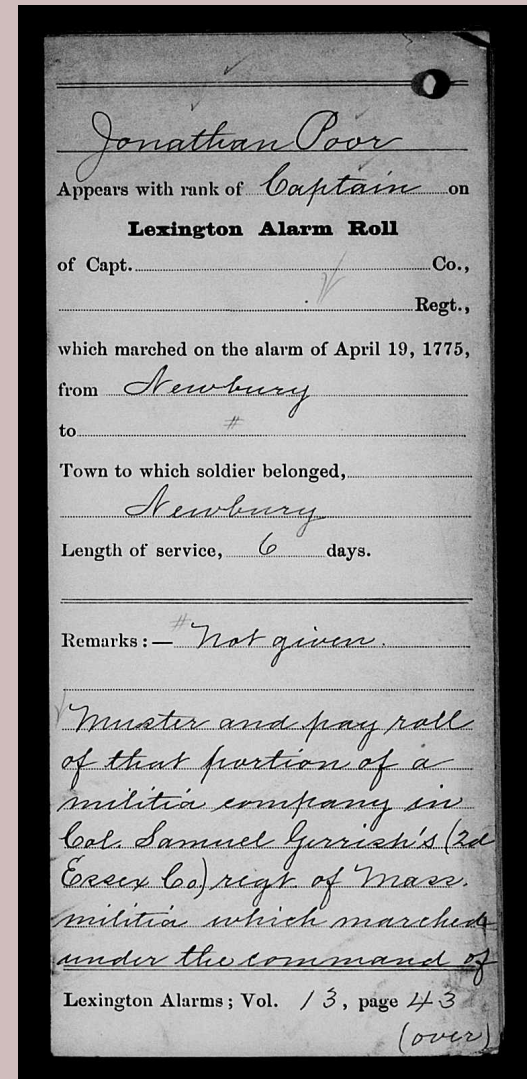 Jonathan Poor
Appears with rank of Captain on
Lexington Alarm Roll
of Capt. Co.,
Regt.,
which marched on the alarm of April 19, 1775,
from Newbury
to #
Town to which soldier belonged,
Newbury
Length of service, 6 days.
Remarks:— # Not given.
Muster and pay roll
of that portion of a
militia company in
Col. Samuel Gerrish's (2d
Essex Co) regt of Mass.
militia which marched
under the command of
Lexington Alarms; Vol. 13, page 43
(over)